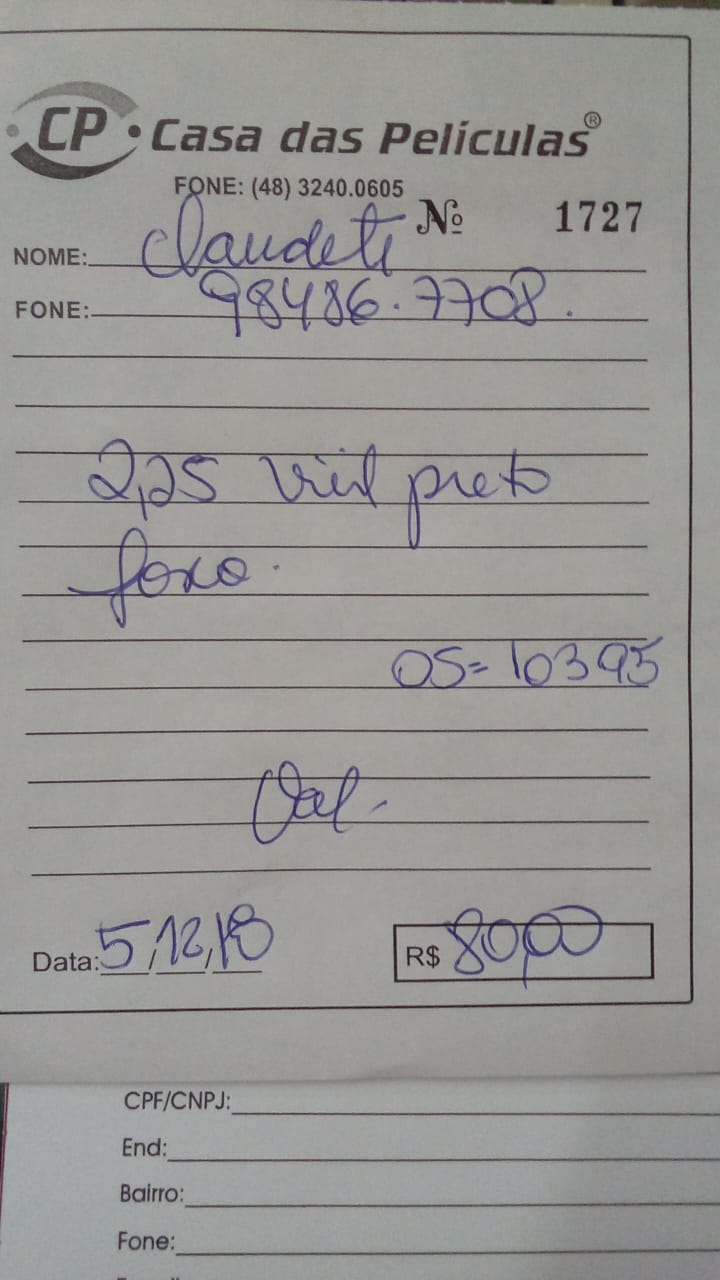 CP • Casa das Películas®
FONE: (48) 3240.0605
Nº 1727
NOME: Claudete
FONE: 98486.7708.
2,25 preto
foxo.
OS= 10395
Data: 5/12/18
R$ 80,00
CPF/CNPJ:
End:
Bairro:
Fone: